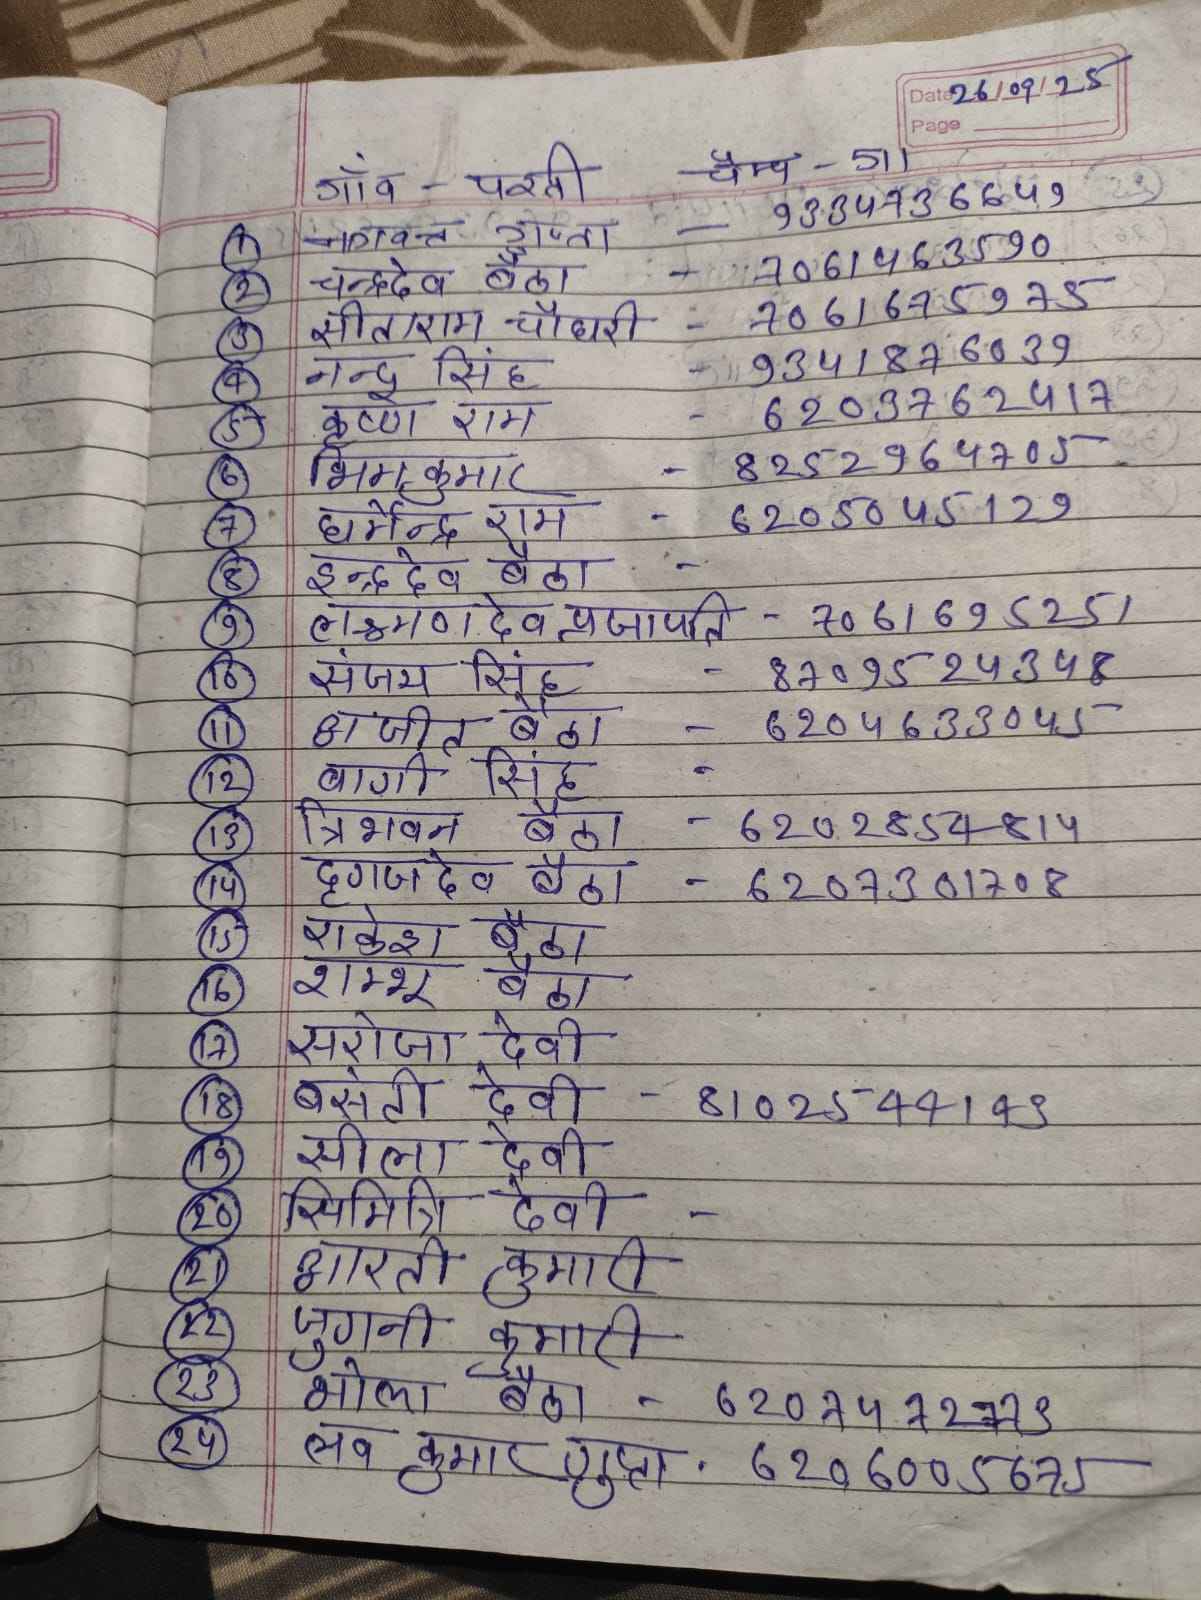 Date 26/09/25
Page
गाँव - परती चैम्प - जा
1 भगवन्त गुप्ता - 9334736649
2 चन्द्रदेव बैठा - 7061463590
3 सीताराम चौधरी - 7061675975
4 नन्दू सिंह - 9341876039
5 कृष्ण राम - 6203762417
6 भिम कुमार - 8252964705
7 धर्मेन्द्र राम - 6205045129
8 इन्द्रदेव बैठा -
9 लक्ष्मण देव प्रजापति - 7061695251
10 संजय सिंह - 8709524348
11 अजीत बैठा - 6204633045
12 बागी सिंह -
13 त्रिभवन बैठा - 6202854814
14 बैठा - 6207301708
15 राकेश बैठा
16 शम्भू बैठा
17 सरोजा देवी
18 बसंती देवी - 8102544143
19 सीला देवी
20 सिमित्रि देवी -
21 आरती कुमारी
22 जुगनी कुमारी
23 भोला बैठा - 6207472773
24 लव कुमार गुप्ता . 6206005675